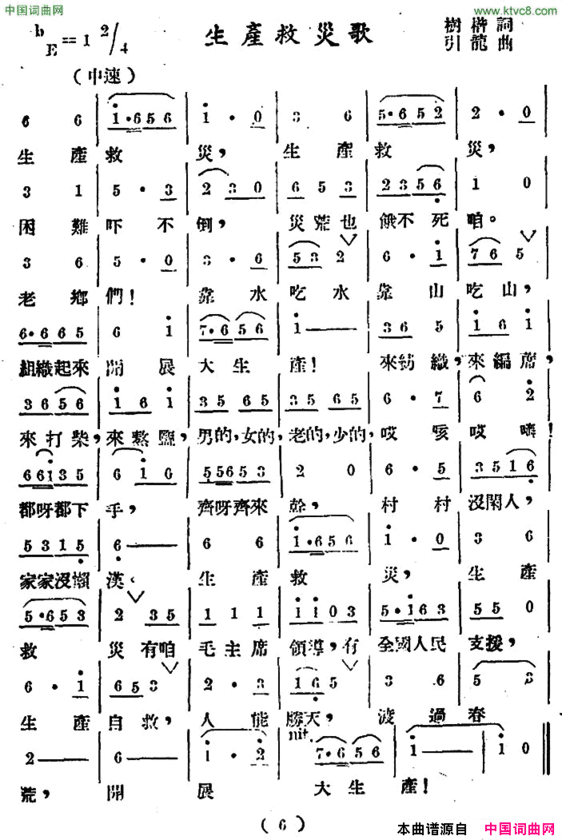 中国词曲网
www.ktvc8.com
生產救災歌
樹楷詞
引龍曲
ᵇE=1 2/4
(中速)
6 6 | i·656 | i·0 | 3 6 | 5·652 | 2·0 |
生產救災，生產救災，
3 1 | 5·3 | 2 3 0 | 6 5 3 | 2 3 5 6 | 1 0
困難吓不倒，災荒也餓不死咱。
3 6 | 5·0 | 3·6 | 5 3 2 | 6·i | 7 6 5
老鄉們！靠水吃水靠山吃山，
6·6 6 5 | 6 i | 7·6 5 6 | i — | 3 6 5 | i 6 i
組織起來開展大生產！來紡織，來編蓆，
3 6 5 6 | i 6 i | 3 5 6 5 | 3 5 6 5 | 6·7 | 6 2
來打柴，來熬鹽，男的，女的，老的，少的，哎咳哎嗨！
6 6 i 3 5 | 6 i 0 | 5 5 6 5 3 | 2 0 | 6·5 | 3 5 1 6
都呀都下手，齊呀齊來幹，村村沒閑人，
5 3 1 5 | 6 — | 6 6 | i·6 5 6 | i·0 | 3 6
家家沒懶漢。生產救災，生產
5·6 5 3 | 2 3 5 | 1 1 1 | i i 0 3 | 5·i 6 3 | 5 5 0
救災有咱毛主席領導，有全國人民支援，
6·i | 6 5 3 | 2·3 | i 6 5 | 3·6 | 5 3
生產自救，人能勝天，渡過春
rit.
2 — | 6 — | i·2 | 7·6 5 6 | i — | i 0
荒，開展大生產！
(6)
本曲谱源自 中国词曲网